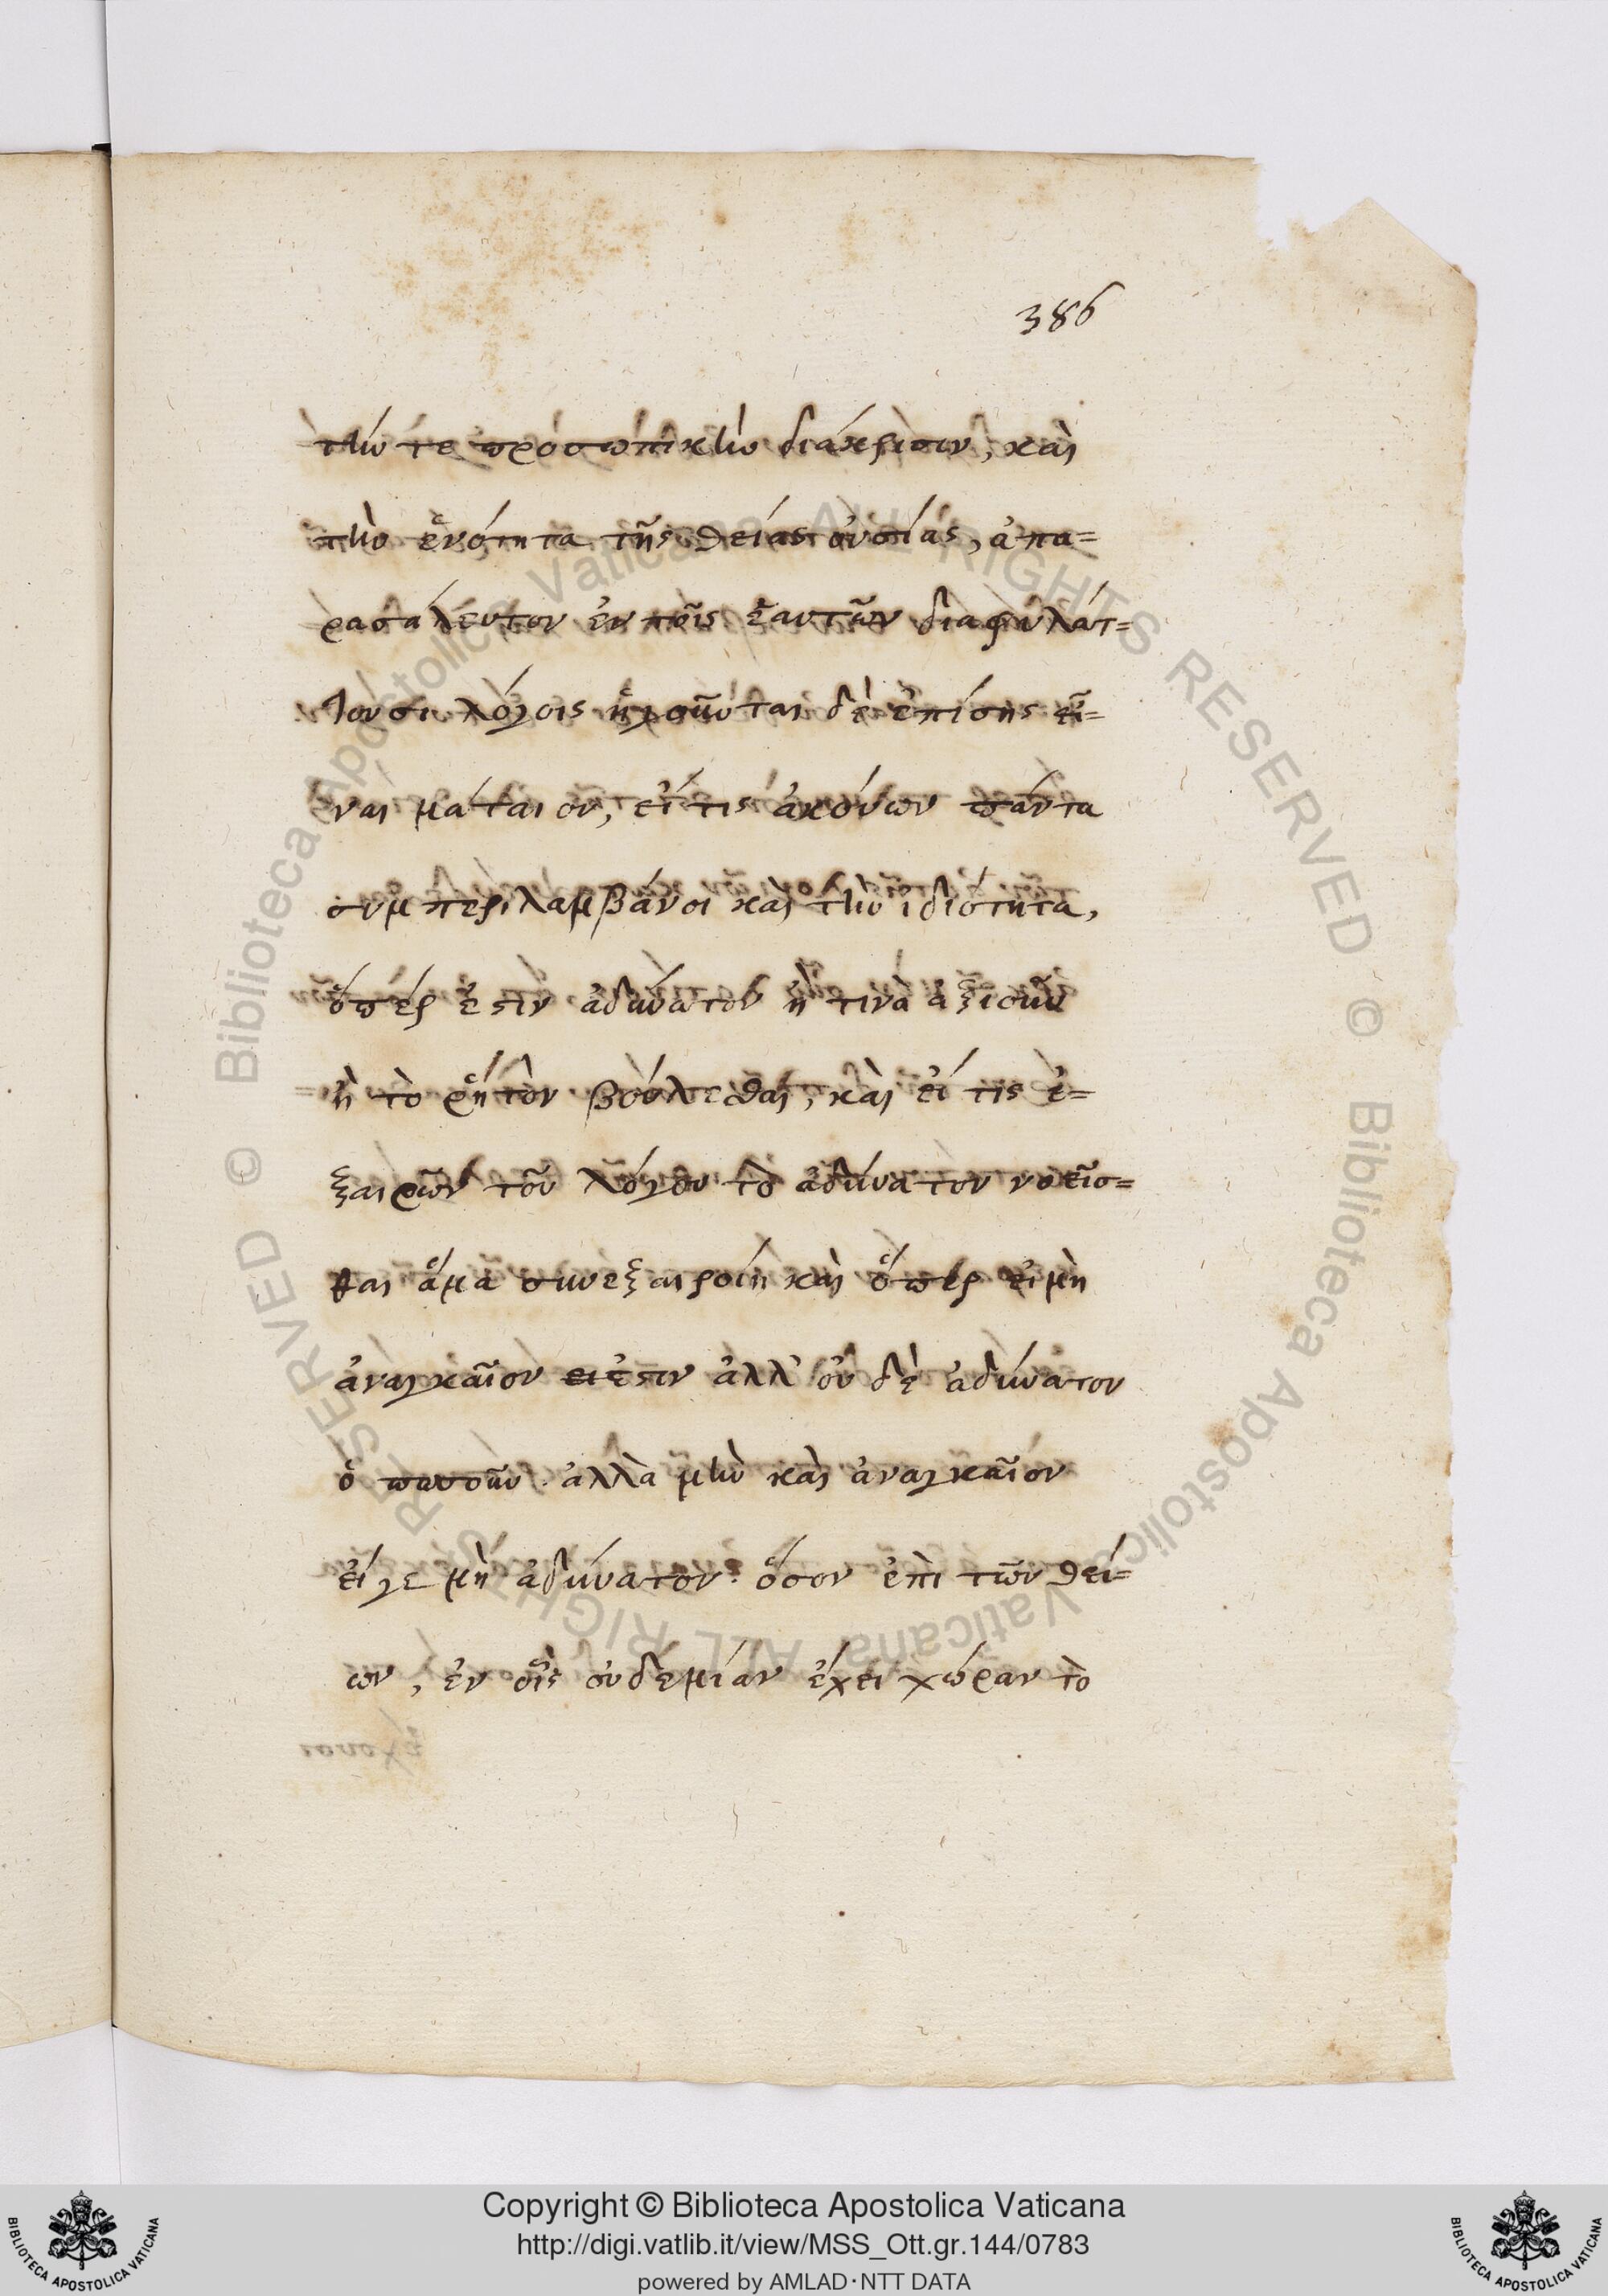 386
τὴν τε προσωπικὴν διάκρισιν, καὶ
τὴν ἑνότητα τῆς θείας οὐσίας, ἀπα=
ρασάλευτον ἐν τοῖς ἑαυτῶν διαφυλάτ=
τουσι λόγοις ἡγοῦνται δὲ ἐπίσης εἶ=
ναι μάταιον, εἴ τις ἀκούων πάντα
συμπεριλαμβάνοι καὶ τὴν ἰδιότητα,
ὅπέρ ἐστιν ἀδύνατον ἢ τινὰ ἀξιοῦν
ἢ τὸ ῥητὸν βούλεσθαι, καὶ εἴ τις ἐ=
ξαιρῶν τοῦ λόγου τὸ ἀδύνατον νοεῖσ=
θαι ἅμα συνεξαιροίη καὶ ὅπερ εἰ μὴ
ἀναγκαῖον ἐστιν ἀλλ' οὐδὲ ἀδύνατον
ὁπωσοῦν. ἀλλὰ μὴν καὶ ἀναγκαῖον
εἴγε μὴ ἀδύνατον. ὅσον ἐπὶ τῶν θεί=
ων, ἐν οἷς οὐδεμίαν ἔχει χώραν τὸ
Copyright © Biblioteca Apostolica Vaticana
http://digi.vatlib.it/view/MSS_Ott.gr.144/0783
powered by AMLAD·NTT DATA
BIBLIOTECA APOSTOLICA VATICANA
BIBLIOTECA APOSTOLICA VATICANA
© Biblioteca Apostolica Vaticana ALL RIGHTS RESERVED © Biblioteca Apostolica Vaticana ALL RIGHTS RESERVED